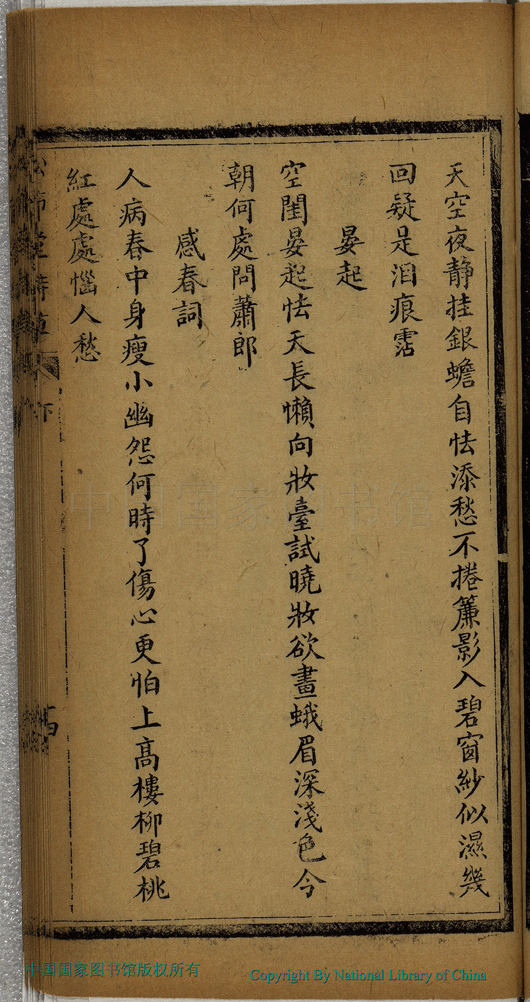 天空夜静挂銀蟾自怯添愁不捲簾影入碧窗紗似濕幾
回疑是泪痕霑
晏起
空閨晏起怯天長懶向妝臺試曉妝欲畫蛾眉深淺色今
朝何處問蕭郎
感春詞
人病春中身瘦小幽怨何時了傷心更怕上高樓柳碧桃
紅處處惱人愁
中国国家图书馆
中国国家图书馆版权所有
Copyright By National Library of China